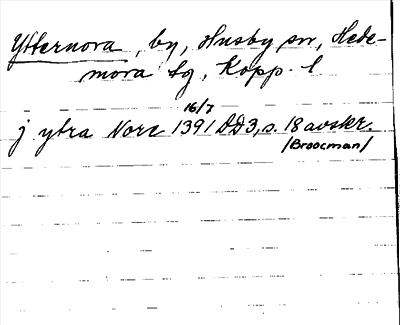 Ytternora, by, Husby sn, Hede-
mora tg, Kopp. l
16/7
j ytra Nore 1391 DD3, s. 18 avskr.
/Broocman/